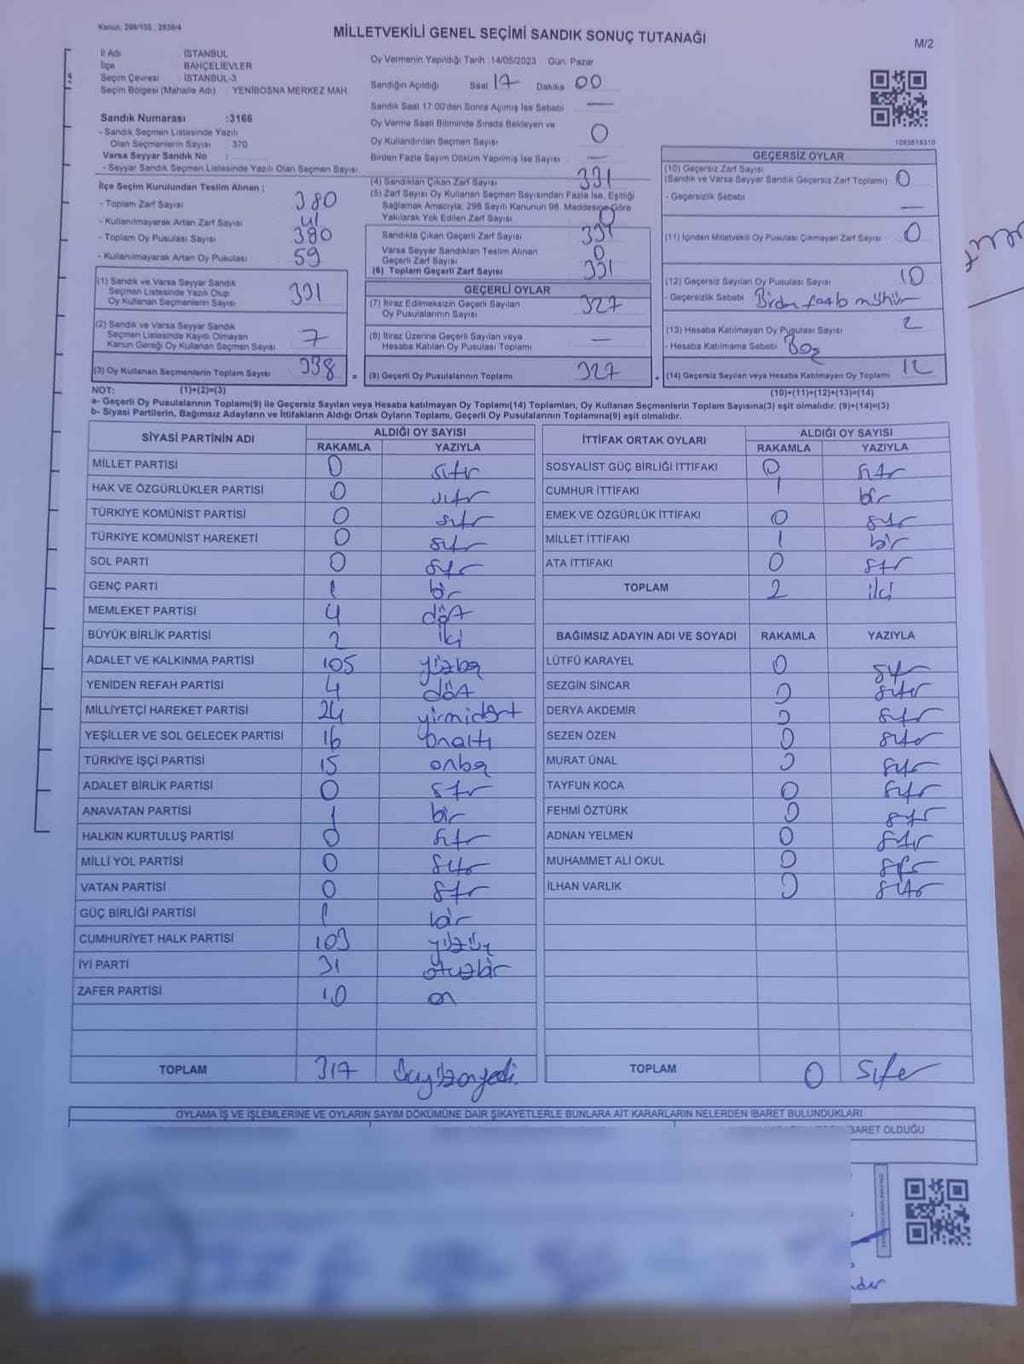 Kanun: 298/105, 2839/4
MİLLETVEKİLİ GENEL SEÇİMİ SANDIK SONUÇ TUTANAĞI
M/2
İl Adı İSTANBUL
İlçe BAHÇELİEVLER
Seçim Çevresi İSTANBUL-3
Seçim Bölgesi (Mahalle Adı) : YENİBOSNA MERKEZ MAH.
Sandık Numarası :3166
- Sandık Seçmen Listesinde Yazılı
Olan Seçmenlerin Sayısı : 370
Varsa Seyyar Sandık No :
- Seyyar Sandık Seçmen Listesinde Yazılı Olan Seçmen Sayısı
Oy Vermenin Yapıldığı Tarih 14/05/2023 Gün: Pazar
Sandığın Açıldığı Saat 17 Dakika 00
Sandık Saat 17:00'den Sonra Açılmış İse Sebebi —
Oy Verme Saati Bitiminde Sırada Bekleyen ve
Oy Kullandırılan Seçmen Sayısı 0
Birden Fazla Sayım Döküm Yapılmış İse Sayısı —
İlçe Seçim Kurulundan Teslim Alınan :
- Toplam Zarf Sayısı 380
- Kullanılmayarak Artan Zarf Sayısı 41
- Toplam Oy Pusulası Sayısı 380
- Kullanılmayarak Artan Oy Pusulası 59
(1) Sandık ve Varsa Seyyar Sandık
Seçmen Listesinde Yazılı Olup
Oy Kullanan Seçmenlerin Sayısı 331
(2) Sandık ve Varsa Seyyar Sandık
Seçmen Listesinde Kayıtlı Olmayan
Kanun Gereği Oy Kullanan Seçmen Sayısı 7
(3) Oy Kullanan Seçmenlerin Toplam Sayısı 338
(4) Sandıktan Çıkan Zarf Sayısı 331
(5) Zarf Sayısı Oy Kullanan Seçmen Sayısından Fazla İse, Eşitliği
Sağlamak Amacıyla, 298 Sayılı Kanunun 98. Maddesine Göre
Yakılarak Yok Edilen Zarf Sayısı 0
Sandıkta Çıkan Geçerli Zarf Sayısı 331
Varsa Seyyar Sandıktan Teslim Alınan
Geçerli Zarf Sayısı 0
(6) Toplam Geçerli Zarf Sayısı 331
GEÇERLİ OYLAR
(7) İtiraz Edilmeksizin Geçerli Sayılan
Oy Pusulalarının Sayısı 327
(8) İtiraz Üzerine Geçerli Sayılan veya
Hesaba Katılan Oy Pusulası Toplamı —
= (9) Geçerli Oy Pusulalarının Toplamı 327
1093618310
GEÇERSİZ OYLAR
(10) Geçersiz Zarf Sayısı
(Sandık ve Varsa Seyyar Sandık Geçersiz Zarf Toplamı) 0
- Geçersizlik Sebebi —
(11) İçinden Milletvekili Oy Pusulası Çıkmayan Zarf Sayısı 0
(12) Geçersiz Sayılan Oy Pusulası Sayısı 10
- Geçersizlik Sebebi Birden fazla mühür
(13) Hesaba Katılmayan Oy Pusulası Sayısı 2
- Hesaba Katılmama Sebebi Boş
+ (14) Geçersiz Sayılan veya Hesaba Katılmayan Oy Toplamı 12
NOT: (1)+(2)=(3) (10)+(11)+(12)+(13)=(14)
a- Geçerli Oy Pusulalarının Toplamı(9) ile Geçersiz Sayılan veya Hesaba katılmayan Oy Toplamı(14) Toplamları, Oy Kullanan Seçmenlerin Toplam Sayısına(3) eşit olmalıdır. (9)+(14)=(3)
b- Siyasi Partilerin, Bağımsız Adayların ve İttifakların Aldığı Ortak Oyların Toplamı, Geçerli Oy Pusulalarının Toplamına(9) eşit olmalıdır.
SİYASİ PARTİNİN ADI ALDIĞI OY SAYISI
RAKAMLA YAZIYLA
MİLLET PARTİSİ 0 sıfır
HAK VE ÖZGÜRLÜKLER PARTİSİ 0 sıfır
TÜRKİYE KOMÜNİST PARTİSİ 0 sıfır
TÜRKİYE KOMÜNİST HAREKETİ 0 sıfır
SOL PARTİ 0 sıfır
GENÇ PARTİ 1 bir
MEMLEKET PARTİSİ 4 dört
BÜYÜK BİRLİK PARTİSİ 2 iki
ADALET VE KALKINMA PARTİSİ 105 yüzbeş
YENİDEN REFAH PARTİSİ 4 dört
MİLLİYETÇİ HAREKET PARTİSİ 24 yirmidört
YEŞİLLER VE SOL GELECEK PARTİSİ 16 onaltı
TÜRKİYE İŞÇİ PARTİSİ 15 onbeş
ADALET BİRLİK PARTİSİ 0 sıfır
ANAVATAN PARTİSİ 1 bir
HALKIN KURTULUŞ PARTİSİ 0 sıfır
MİLLİ YOL PARTİSİ 0 sıfır
VATAN PARTİSİ 0 sıfır
GÜÇ BİRLİĞİ PARTİSİ 1 bir
CUMHURİYET HALK PARTİSİ 103 yüzüç
İYİ PARTİ 31 otuzbir
ZAFER PARTİSİ 10 on
TOPLAM 317 üçyüzonyedi
İTTİFAK ORTAK OYLARI ALDIĞI OY SAYISI
RAKAMLA YAZIYLA
SOSYALİST GÜÇ BİRLİĞİ İTTİFAKI 0 sıfır
CUMHUR İTTİFAKI 1 bir
EMEK VE ÖZGÜRLÜK İTTİFAKI 0 sıfır
MİLLET İTTİFAKI 1 bir
ATA İTTİFAKI 0 sıfır
TOPLAM 2 iki
BAĞIMSIZ ADAYIN ADI VE SOYADI RAKAMLA YAZIYLA
LÜTFÜ KARAYEL 0 sıfır
SEZGİN SİNCAR 0 sıfır
DERYA AKDEMİR 0 sıfır
SEZEN ÖZEN 0 sıfır
MURAT ÜNAL 0 sıfır
TAYFUN KOCA 0 sıfır
FEHMİ ÖZTÜRK 0 sıfır
ADNAN YELMEN 0 sıfır
MUHAMMET ALİ OKUL 0 sıfır
İLHAN VARLIK 0 sıfır
TOPLAM 0 sıfır
OYLAMA İŞ VE İŞLEMLERİNE VE OYLARIN SAYIM DÖKÜMÜNE DAİR ŞİKAYETLERLE BUNLARA AİT KARARLARIN NELERDEN İBARET BULUNDUKLARI
BARET OLDUĞU